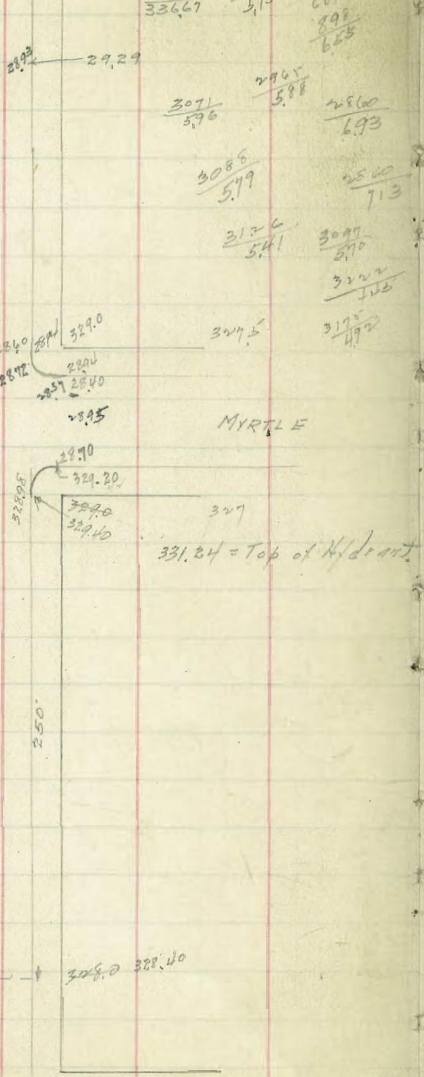 33667
898
655
2893
29.29
3071
5.96
2965
5.88
2860
6.93
3088
5.79
2860
713
3126
5.41
3097
5.70
3222
329.0
327.5
3175
492
2860
2894
2872
2894
2857 28.40
28.95
MYRTLE
28.90
329.20
328.95
329.0
329.40
327
331.24 = Top of Hydrant
250'
328.0 328.40